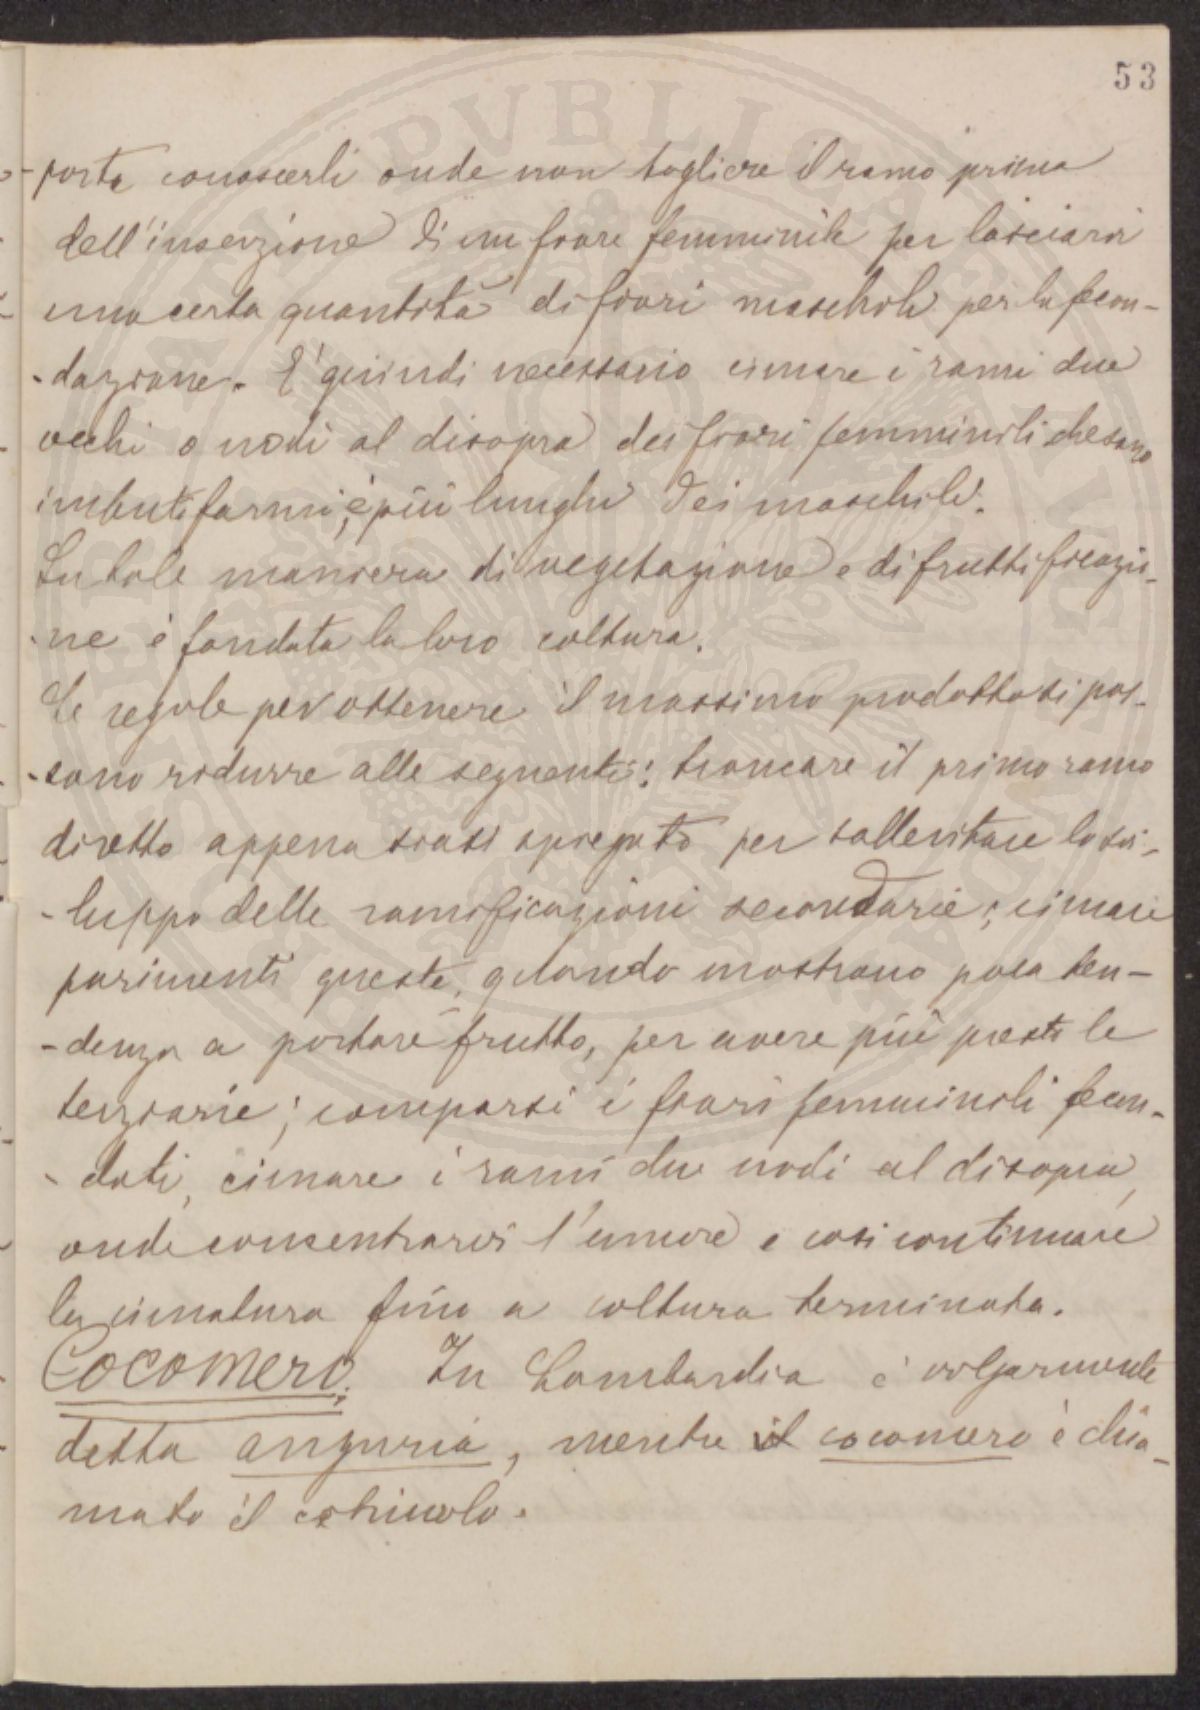 53
-porta conoscerli onde non togliere il ramo prima
dell'inserzione di un fiore femminile per lasciarvi
una certa quantità di fiori maschili per la fecon-
-dazione. E' quindi necessario cimare i rami due
occhi o nodi al disopra dei fiori femminili che sono
imbutiformi, e più lunghi dei maschili.
Su tale maniera di vegetazione e di fruttificazio-
-ne è fondata la loro coltura.
Le regole per ottenere il massimo prodotto si pos-
-sono ridurre alle seguenti: troncare il primo ramo
diretto appena siasi spiegato per sollecitare lo svi-
-luppo delle ramificazioni secondarie; cimare
parimenti queste, quando mostrano poca ten-
-denza a portare frutto, per avere più presto le
terziarie; comparsi i fiori femminili fecon-
-dati, cimare i rami due nodi al disopra,
onde consentrarvi l'umore e così continuare
la cimatura fino a coltura terminata.
Cocomero: In Lombardia è volgarmente
detta anguria, mentre il cocomero è chia-
mato il cetriuolo.